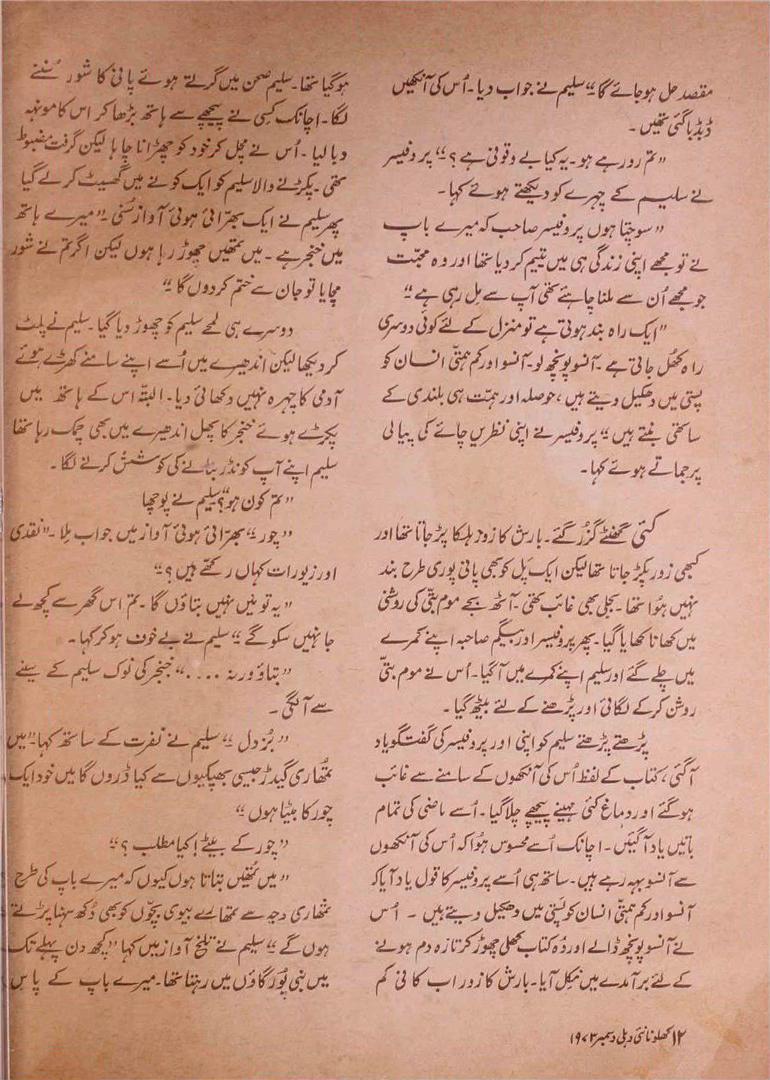 مقصد حل ہو جائے گا“ سلیم نے جواب دیا۔ اُس کی آنکھیں
ڈبڈبا گئی تھیں۔
”تم رو رہے ہو۔ یہ کیا بے وقوفی ہے؟“ پروفیسر
نے سلیم کے چہرے کو دیکھتے ہوئے کہا۔
”سوچتا ہوں پروفیسر صاحب کہ میرے باپ
نے تو مجھے اپنی زندگی ہی میں یتیم کر دیا تھا اور وہ محبّت
جو مجھے اُن سے ملنا چاہئے تھی آپ سے مل رہی ہے“
”ایک راہ بند ہوتی ہے تو منزل کے لئے کوئی دوسری
راہ کھُل جاتی ہے۔ آنسو پونچھ لو۔ آنسو اور کم ہمتّی انسان کو
پستی میں دھکیل دیتے ہیں، حوصلہ اور ہمّت ہی بلندی کے
ساتھی بنتے ہیں“ پروفیسر نے اپنی نظریں چائے کی پیالی
پر جماتے ہوئے کہا۔
کئی گھنٹے گزر گئے۔ بارش کا زور ہلکا پڑ جاتا تھا اور
کبھی زور پکڑ جاتا تھا لیکن ایک پل کو بھی پانی پوری طرح بند
نہیں ہوا تھا۔ بجلی بھی غائب تھی۔ آٹھ بجے موم بتّی کی روشنی
میں کھانا کھایا گیا۔ پھر پروفیسر اور بیگم صاحبہ اپنے کمرے
میں چلے گئے اور سلیم اپنے کمرے میں آ گیا۔ اُس نے موم بتّی
روشن کر کے لگائی اور پڑھنے کے لئے بیٹھ گیا۔
پڑھتے پڑھتے سلیم کو اپنی اور پروفیسر کی گفتگو یاد
آ گئی، کتاب کے لفظ اُس کی آنکھوں کے سامنے سے غائب
ہو گئے اور دماغ کئی مہینے پیچھے چلا گیا۔ اُسے ماضی کی تمام
باتیں یاد آ گئیں۔ اچانک اُسے محسوس ہوا کہ اُس کی آنکھوں
سے آنسو بہہ رہے ہیں۔ ساتھ ہی اُسے پروفیسر کا قول یاد آیا کہ
آنسو اور کم ہمتّی انسان کو پستی میں دھکیل دیتے ہیں۔ اُس
نے آنسو پونچھ ڈالے اور وُہ کتاب کھلی چھوڑ کر تازہ دم ہونے
کے لئے برآمدے میں نکل آیا۔ بارش کا زور اب کافی کم
ہو گیا تھا۔ سلیم صحن میں گرتے ہوئے پانی کا شور سُننے
لگا۔ اچانک کسی نے پیچھے سے ہاتھ بڑھا کر اس کا مونہہ
دبا لیا۔ اُس نے مچل کر خود کو چھڑانا چاہا لیکن گرفت مضبوط
تھی۔ پکڑنے والا سلیم کو ایک کونے میں گھسیٹ کر لے گیا
پھر سلیم نے ایک بھرّائی ہوئی آواز سُنی۔ ”میرے ہاتھ
میں خنجر ہے۔ میں تمھیں چھوڑ رہا ہوں لیکن اگر تم نے شور
مچایا تو جان سے ختم کر دوں گا“
دوسرے ہی لمحے سلیم کو چھوڑ دیا گیا۔ سلیم نے پلٹ
کر دیکھا لیکن اندھیرے میں اُسے اپنے سامنے کھڑے ہوئے
آدمی کا چہرہ نہیں دکھائی دیا۔ البتّہ اس کے ہاتھ میں
پکڑے ہوئے خنجر کا پھل اندھیرے میں بھی چمک رہا تھا
سلیم اپنے آپ کو نڈر بنانے کی کوشش کرنے لگا۔
”تم کون ہو؟“ سلیم نے پوچھا
”چور“ بھرّائی ہوئی آواز میں جواب مِلا۔ ”نقدی
اور زیورات کہاں رکھے ہیں؟“
”یہ تو میں نہیں بتاؤں گا۔ تم اس گھر سے کچھ لے
جا نہیں سکو گے“ سلیم نے بے خوف ہو کر کہا۔
”بتاؤ ورنہ ....“ خنجر کی نوک سلیم کے سینے
سے آ لگی۔
”بُزدل“ سلیم نے نفرت کے ساتھ کہا۔ ”میں
تمُھاری گیدڑ جیسی بھپکیوں سے کیا ڈروں گا میں خود ایک
چور کا بیٹا ہوں“
”چور کے بیٹے! کیا مطلب؟“
”میں تُمھیں بتاتا ہوں کیوں کہ میرے باپ کی طرح
تمُھاری وجہ سے تمھارے بیوی بچّوں کو بھی دُکھ سہنا پڑتے
ہوں گے“ سلیم نے تلخ آواز میں کہا ”کچھ دن پہلے تک
میں نبی پُور گاؤں میں رہتا تھا۔ میرے باپ کے پاس
۱۲ کھلونا نئی دہلی دسمبر ۱۹۷۳